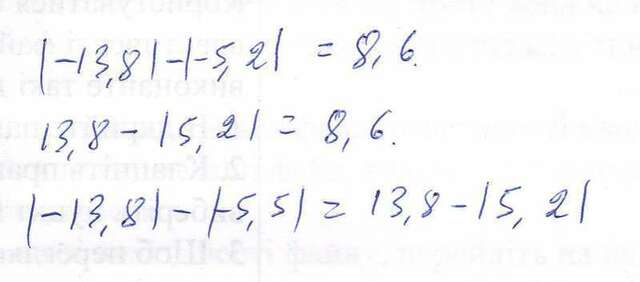 |−13,8|−|−5,2| = 8,6.
13,8 − |5,2| = 8,6.
|−13,8| − |−5,5| = 13,8 − |5,2|